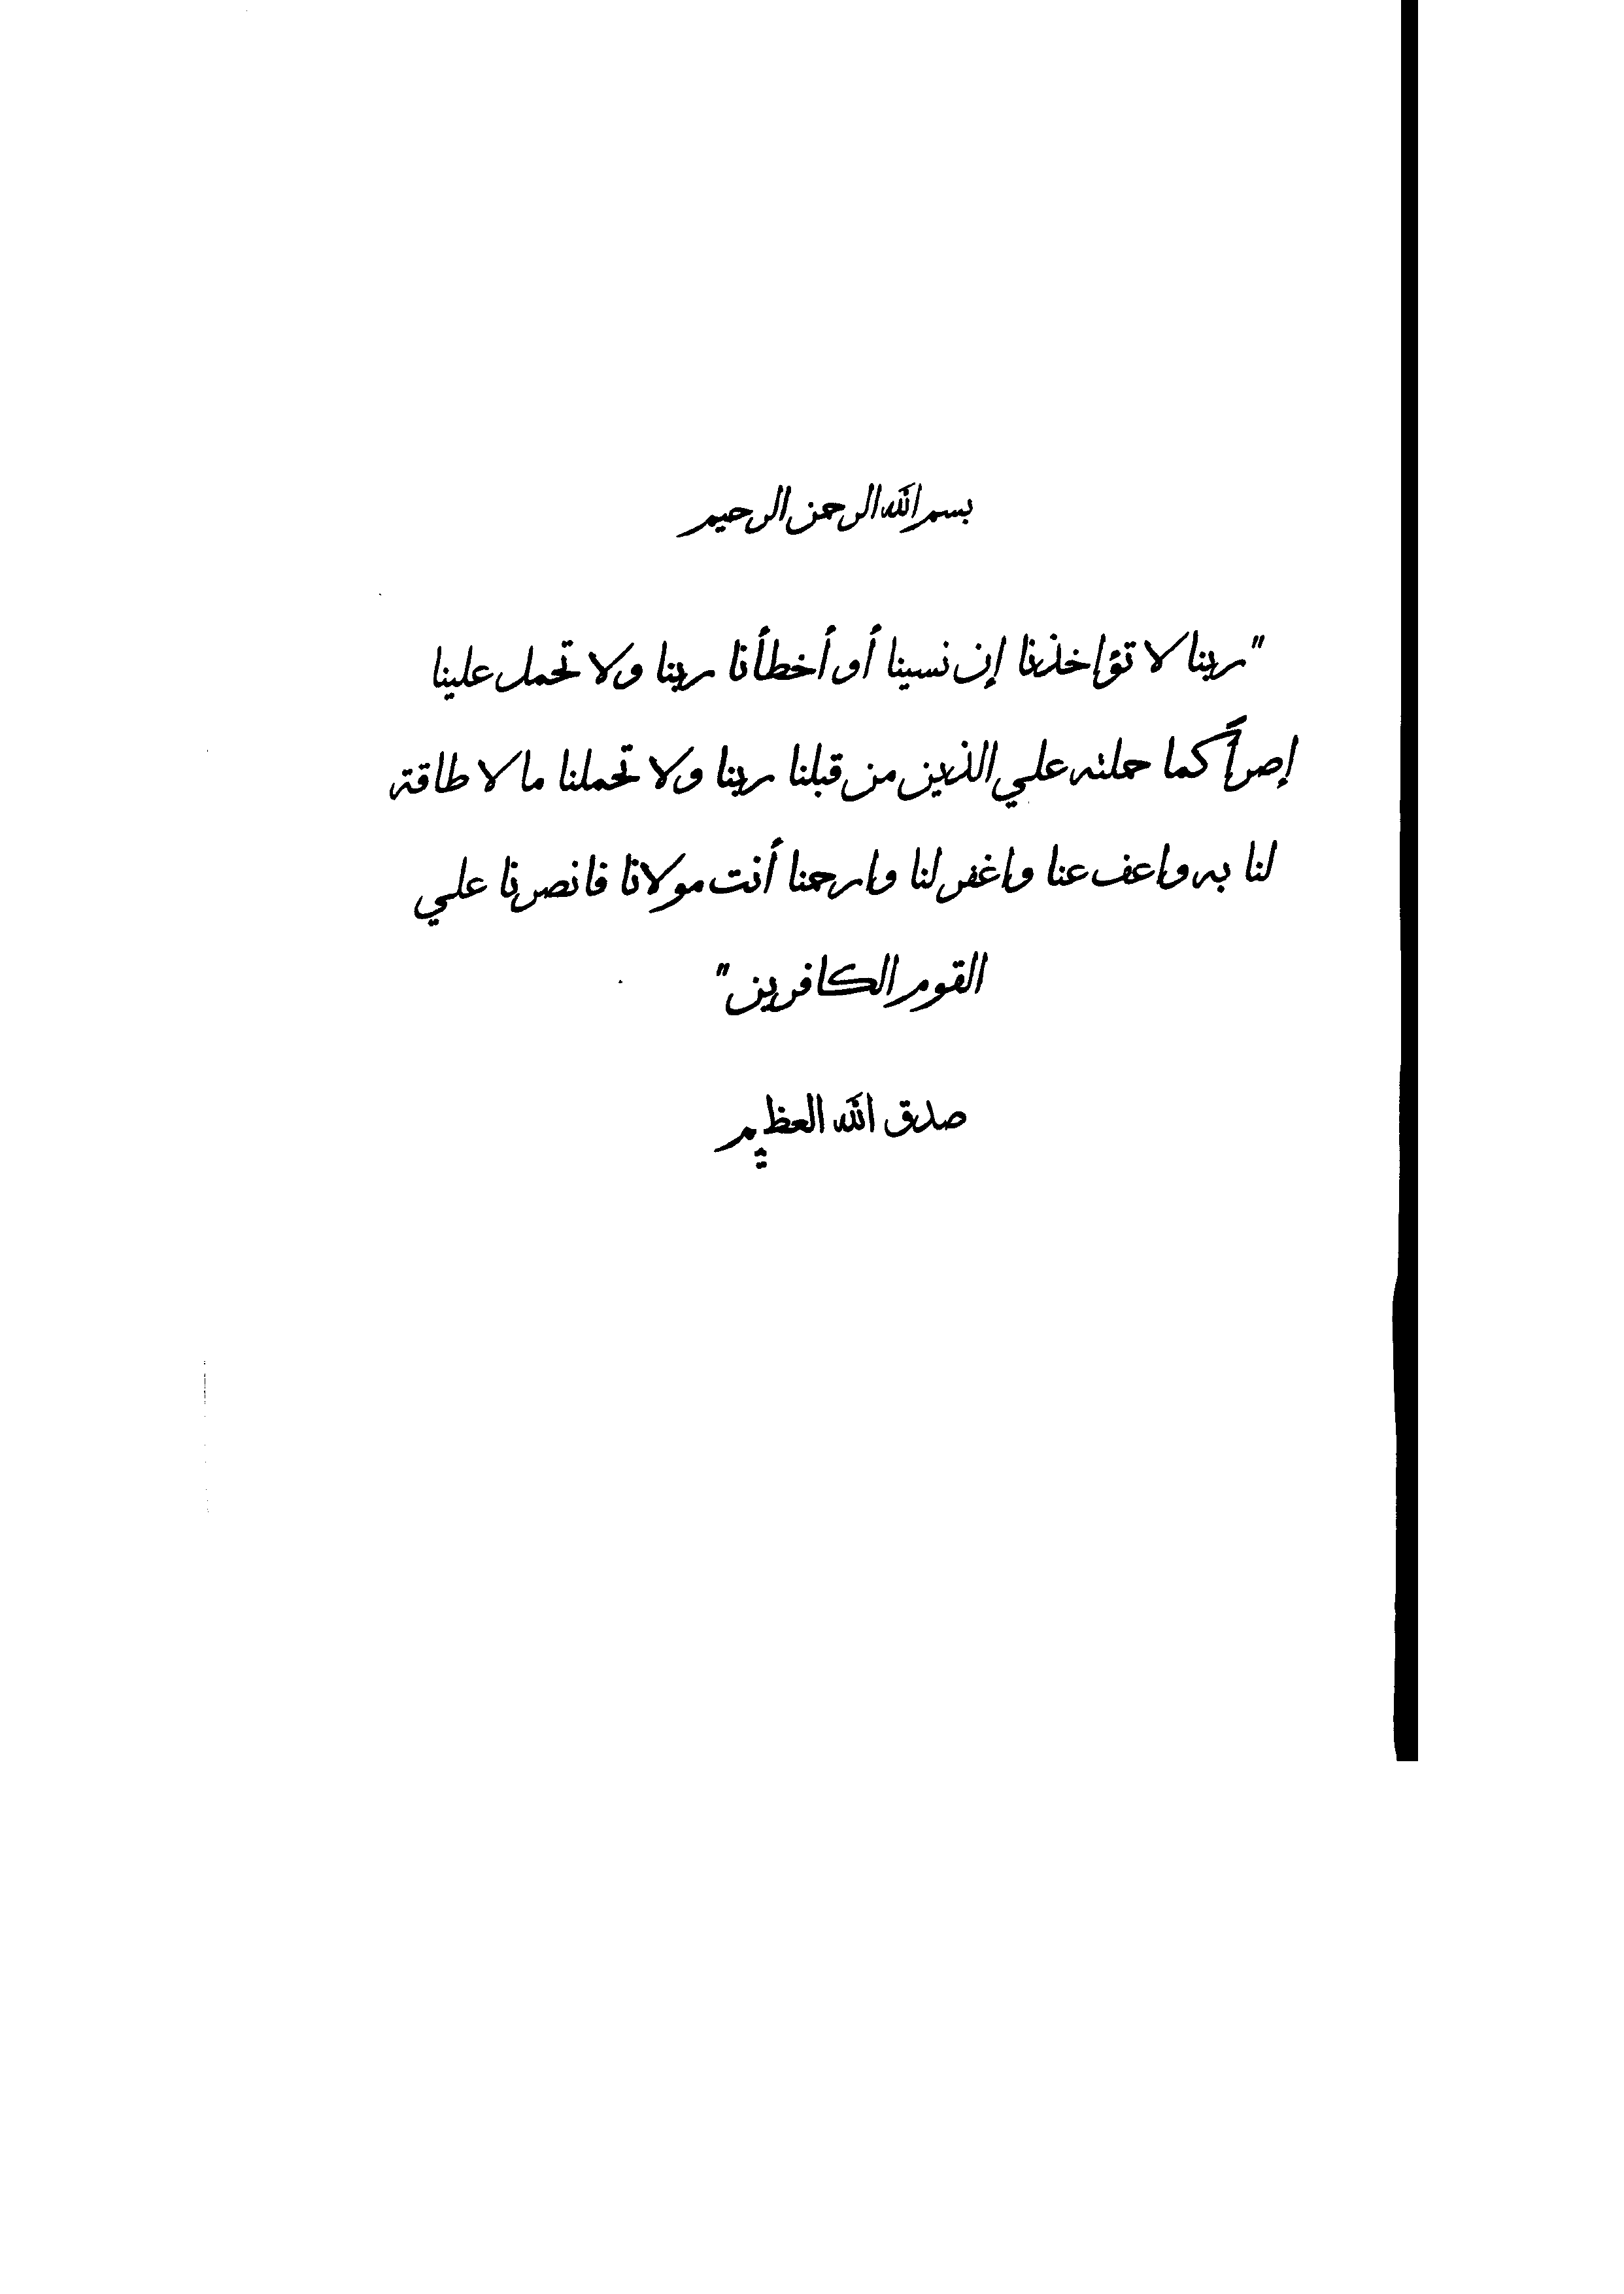 بسم الله الرحمن الرحيم
"ربنا لا تؤاخذنا إن نسينا أو أخطأنا ربنا ولا تحمل علينا
إصراً كما حملته علي الذين من قبلنا ربنا ولا تحملنا ما لا طاقة
لنا به واعف عنا واغفر لنا وارحمنا أنت مولانا فانصرنا علي
القوم الكافرين"
صدق الله العظيم